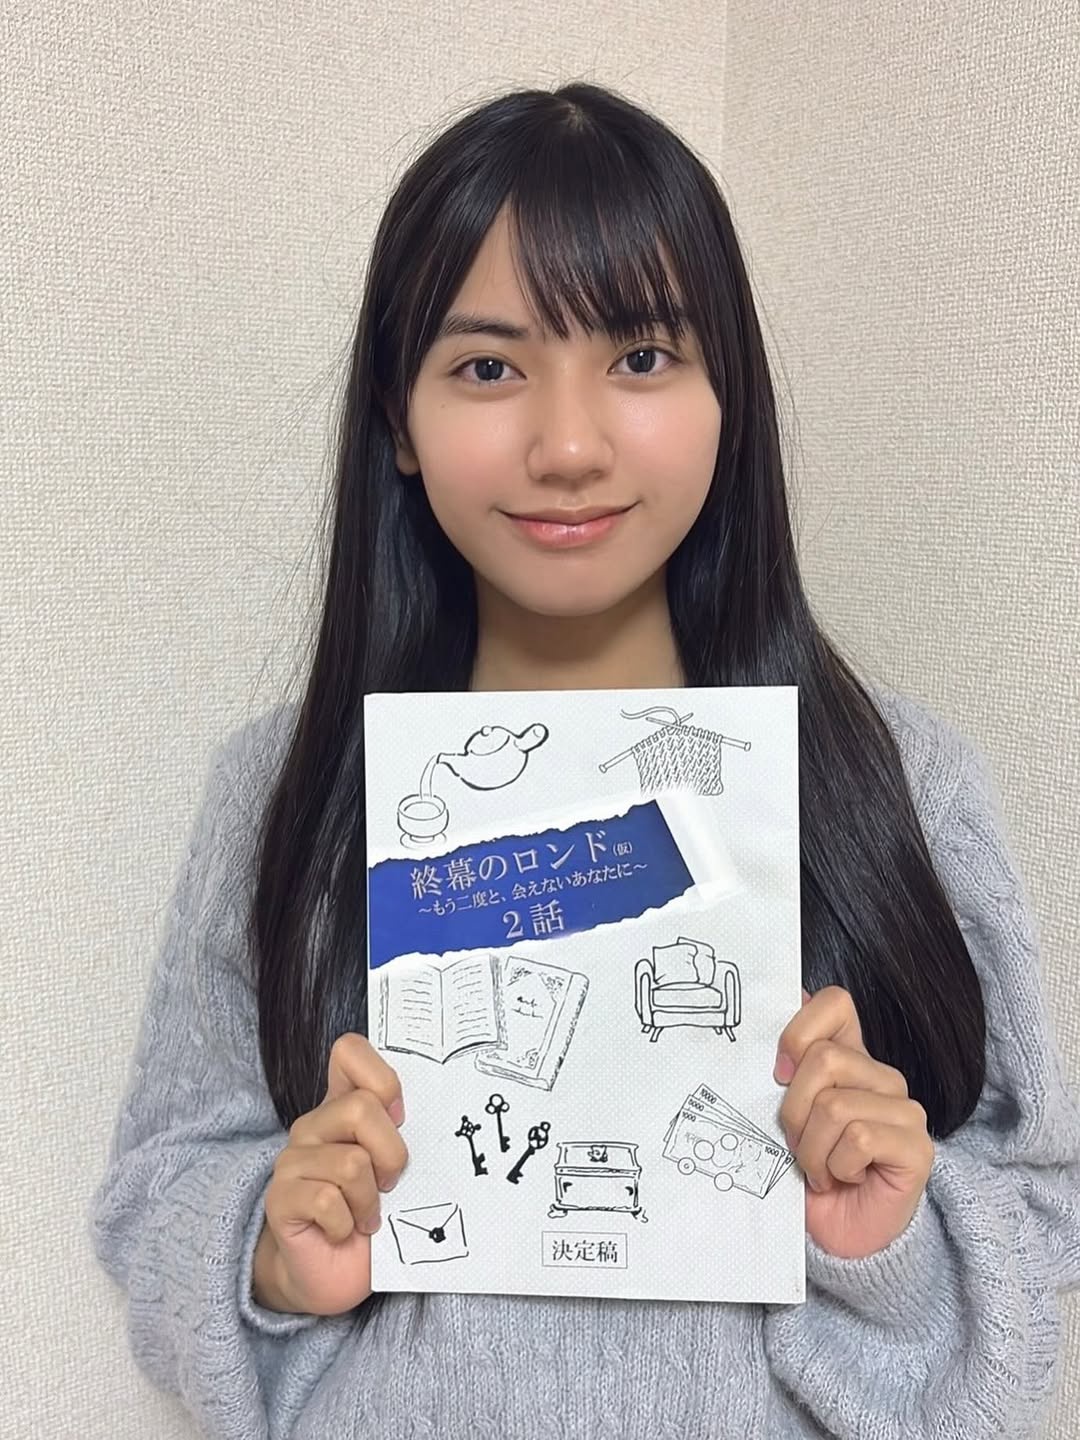 終幕のロンド(仮)
〜もう二度と、会えないあなたに〜
2話
10000
5000
1000
1000
決定稿